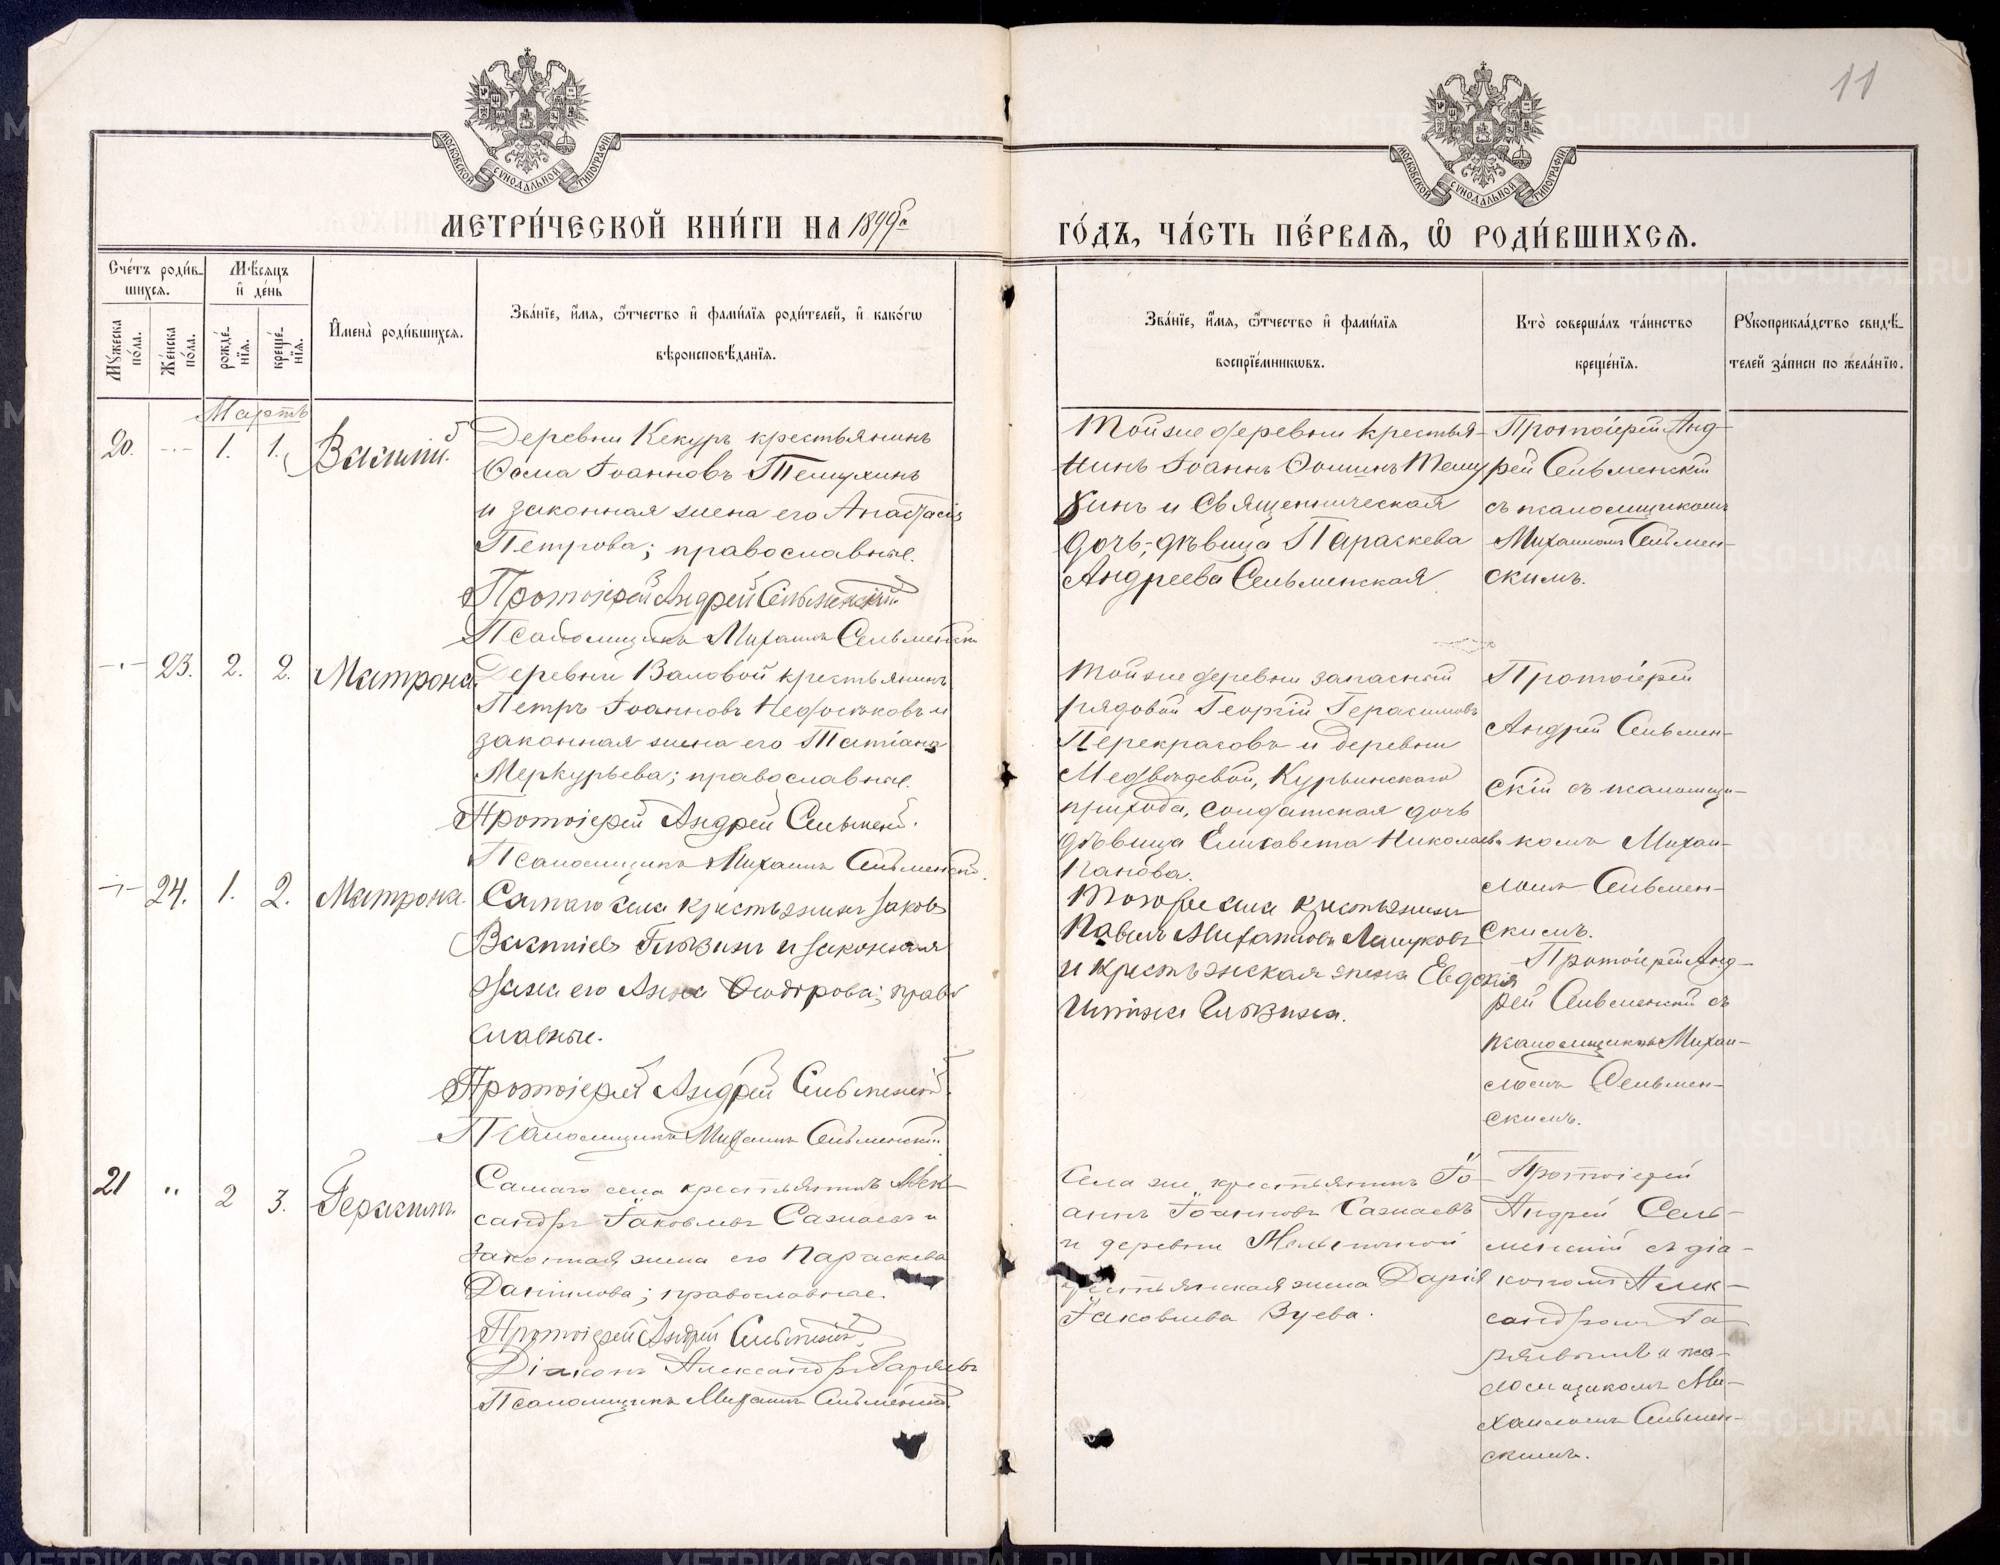 11
МОСКОВСКОЙ СУНОДАЛЬНОЙ ТИПОГРАФІИ
МОСКОВСКОЙ СУНОДАЛЬНОЙ ТИПОГРАФІИ
МЕТРИ́ЧЕСКОЙ КНИ́ГИ НА 1899 ГО́ДЪ, ЧА́СТЬ ПЕ́РВАЯ, Ѡ҆ РОДИ́ВШИХСЯ.
Сче́тъ роди́в-
шихся.
Мѣ́сяцъ
и҆ де́нь
Му́жеска по́ла.
Же́нска по́ла.
рожде́-
нїя.
креще́-
нїя.
И҆мена̀ роди́вшихся.
Зва́нїе, и҆́мя, ѻ҆́тчество и҆ фами́лїя роди́телей, и҆ како́гѡ
вѣроисповѣ́данїя.
Зва́нїе, и҆́мя, ѻ҆́тчество и҆ фами́лїя
воспрїе́мникѡвъ.
Кто̀ соверша́лъ та́инство
креще́нїя.
Рукоприкла́дство свидѣ́-
телей за́писи по жела́нїю.
Мартъ
20. 1. 1. Василій.
Деревни Кекуръ крестьянинъ
Ѳома Іоанновъ Темухинъ
и законная жена его Анастасія
Петрова; православные.
Протоіерей Андрей Сельменскій
Псаломщикъ Михаилъ Сельменскій
Той же деревни крестья-
нинъ Іоаннъ Ѳоминъ Тему
хинъ и Священническая
дочь-дѣвица Параскева
Андреева Сельменская
Протоіерей Анд-
рей Сельменскій
съ псаломщикомъ
Михаиломъ Сельмен-
скимъ.
23. 2. 2. Матрона.
Деревни Валовой крестьянинъ
Петръ Іоанновъ Недосѣковъ и
законная жена его Татіана
Меркурьева; православные.
Протоіерей Андрей Сельменск.
Псаломщикъ Михаилъ Сельменскій.
Той же деревни запасный
рядовой Георгій Герасимовъ
Перекрасовъ и деревни
Медвѣдевой, Курьинскаго
прихода, солдатская дочь
дѣвица Елисавета Николаева
Панова.
Протоіерей
Андрей Сельмен-
скій съ псаломщи-
комъ Михаи-
ломъ Сельмен-
скимъ.
24. 1. 2. Матрона.
Самаго села крестьянинъ Іаковъ
Василіевъ Глызинъ и законная
жена его Анна Ѳеодорова; право
славные.
Протоіерей Андрей Сельменскій
Псаломщикъ Михаилъ Сельменскій.
Того же села крестьянинъ
Павелъ Михаиловъ Лашуковъ
и крестьянская жена Евдокія
Глызина.
Протоіерей Анд-
рей Сельменскій съ
псаломщикомъ Михаи-
ломъ Сельмен-
скимъ.
21 " 2 3. Герасимъ.
Самаго села крестьянинъ Алек-
сандръ Іаковлевъ Сазнаевъ и
законная жена его Параскева
Даніилова; православные.
Протоіерей Андрей Сельменскій
Діаконъ Александръ Гаряевъ
Псаломщикъ Михаилъ Сельменскій.
Села же крестьянинъ Іо-
аннъ Іоанновъ Сазнаевъ
и деревни Мельничной
крестьянская жена Дарія
Іаковлева Зуева.
Протоіерей
Андрей Сель-
менскій съ діа-
кономъ Алек-
сандромъ Га-
ряевымъ и пса-
ломщикомъ Ми-
хаиломъ Сельмен-
скимъ.
METRIKI.GASO-URAL.RU